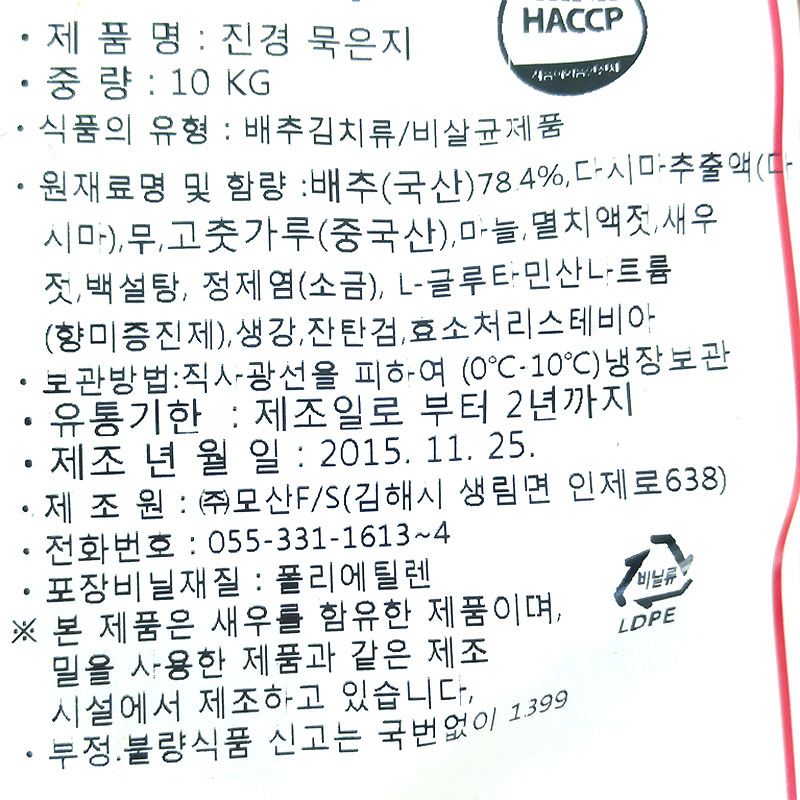 · 제 품 명 : 진경 묵은지
HACCP
· 중 량 : 10 KG
· 식품의 유형 : 배추김치류/비살균제품
· 원재료명 및 함량 :배추(국산)78.4%,다시마추출액(다
시마),무,고춧가루(중국산),마늘,멸치액젓,새우
젓,백설탕, 정제염(소금), L-글루타민산나트륨
(향미증진제),생강,잔탄검,효소처리스테비아
· 보관방법:직사광선을 피하여 (0℃-10℃)냉장보관
· 유통기한 : 제조일로 부터 2년까지
· 제조 년 월 일 : 2015. 11. 25.
· 제 조 원 : ㈜모산F/S(김해시 생림면 인제로638)
· 전화번호 : 055-331-1613~4
· 포장비닐재질 : 폴리에틸렌
비닐류
LDPE
※ 본 제품은 새우를 함유한 제품이며,
밀을 사용한 제품과 같은 제조
시설에서 제조하고 있습니다,
· 부정.불량식품 신고는 국번없이 1399